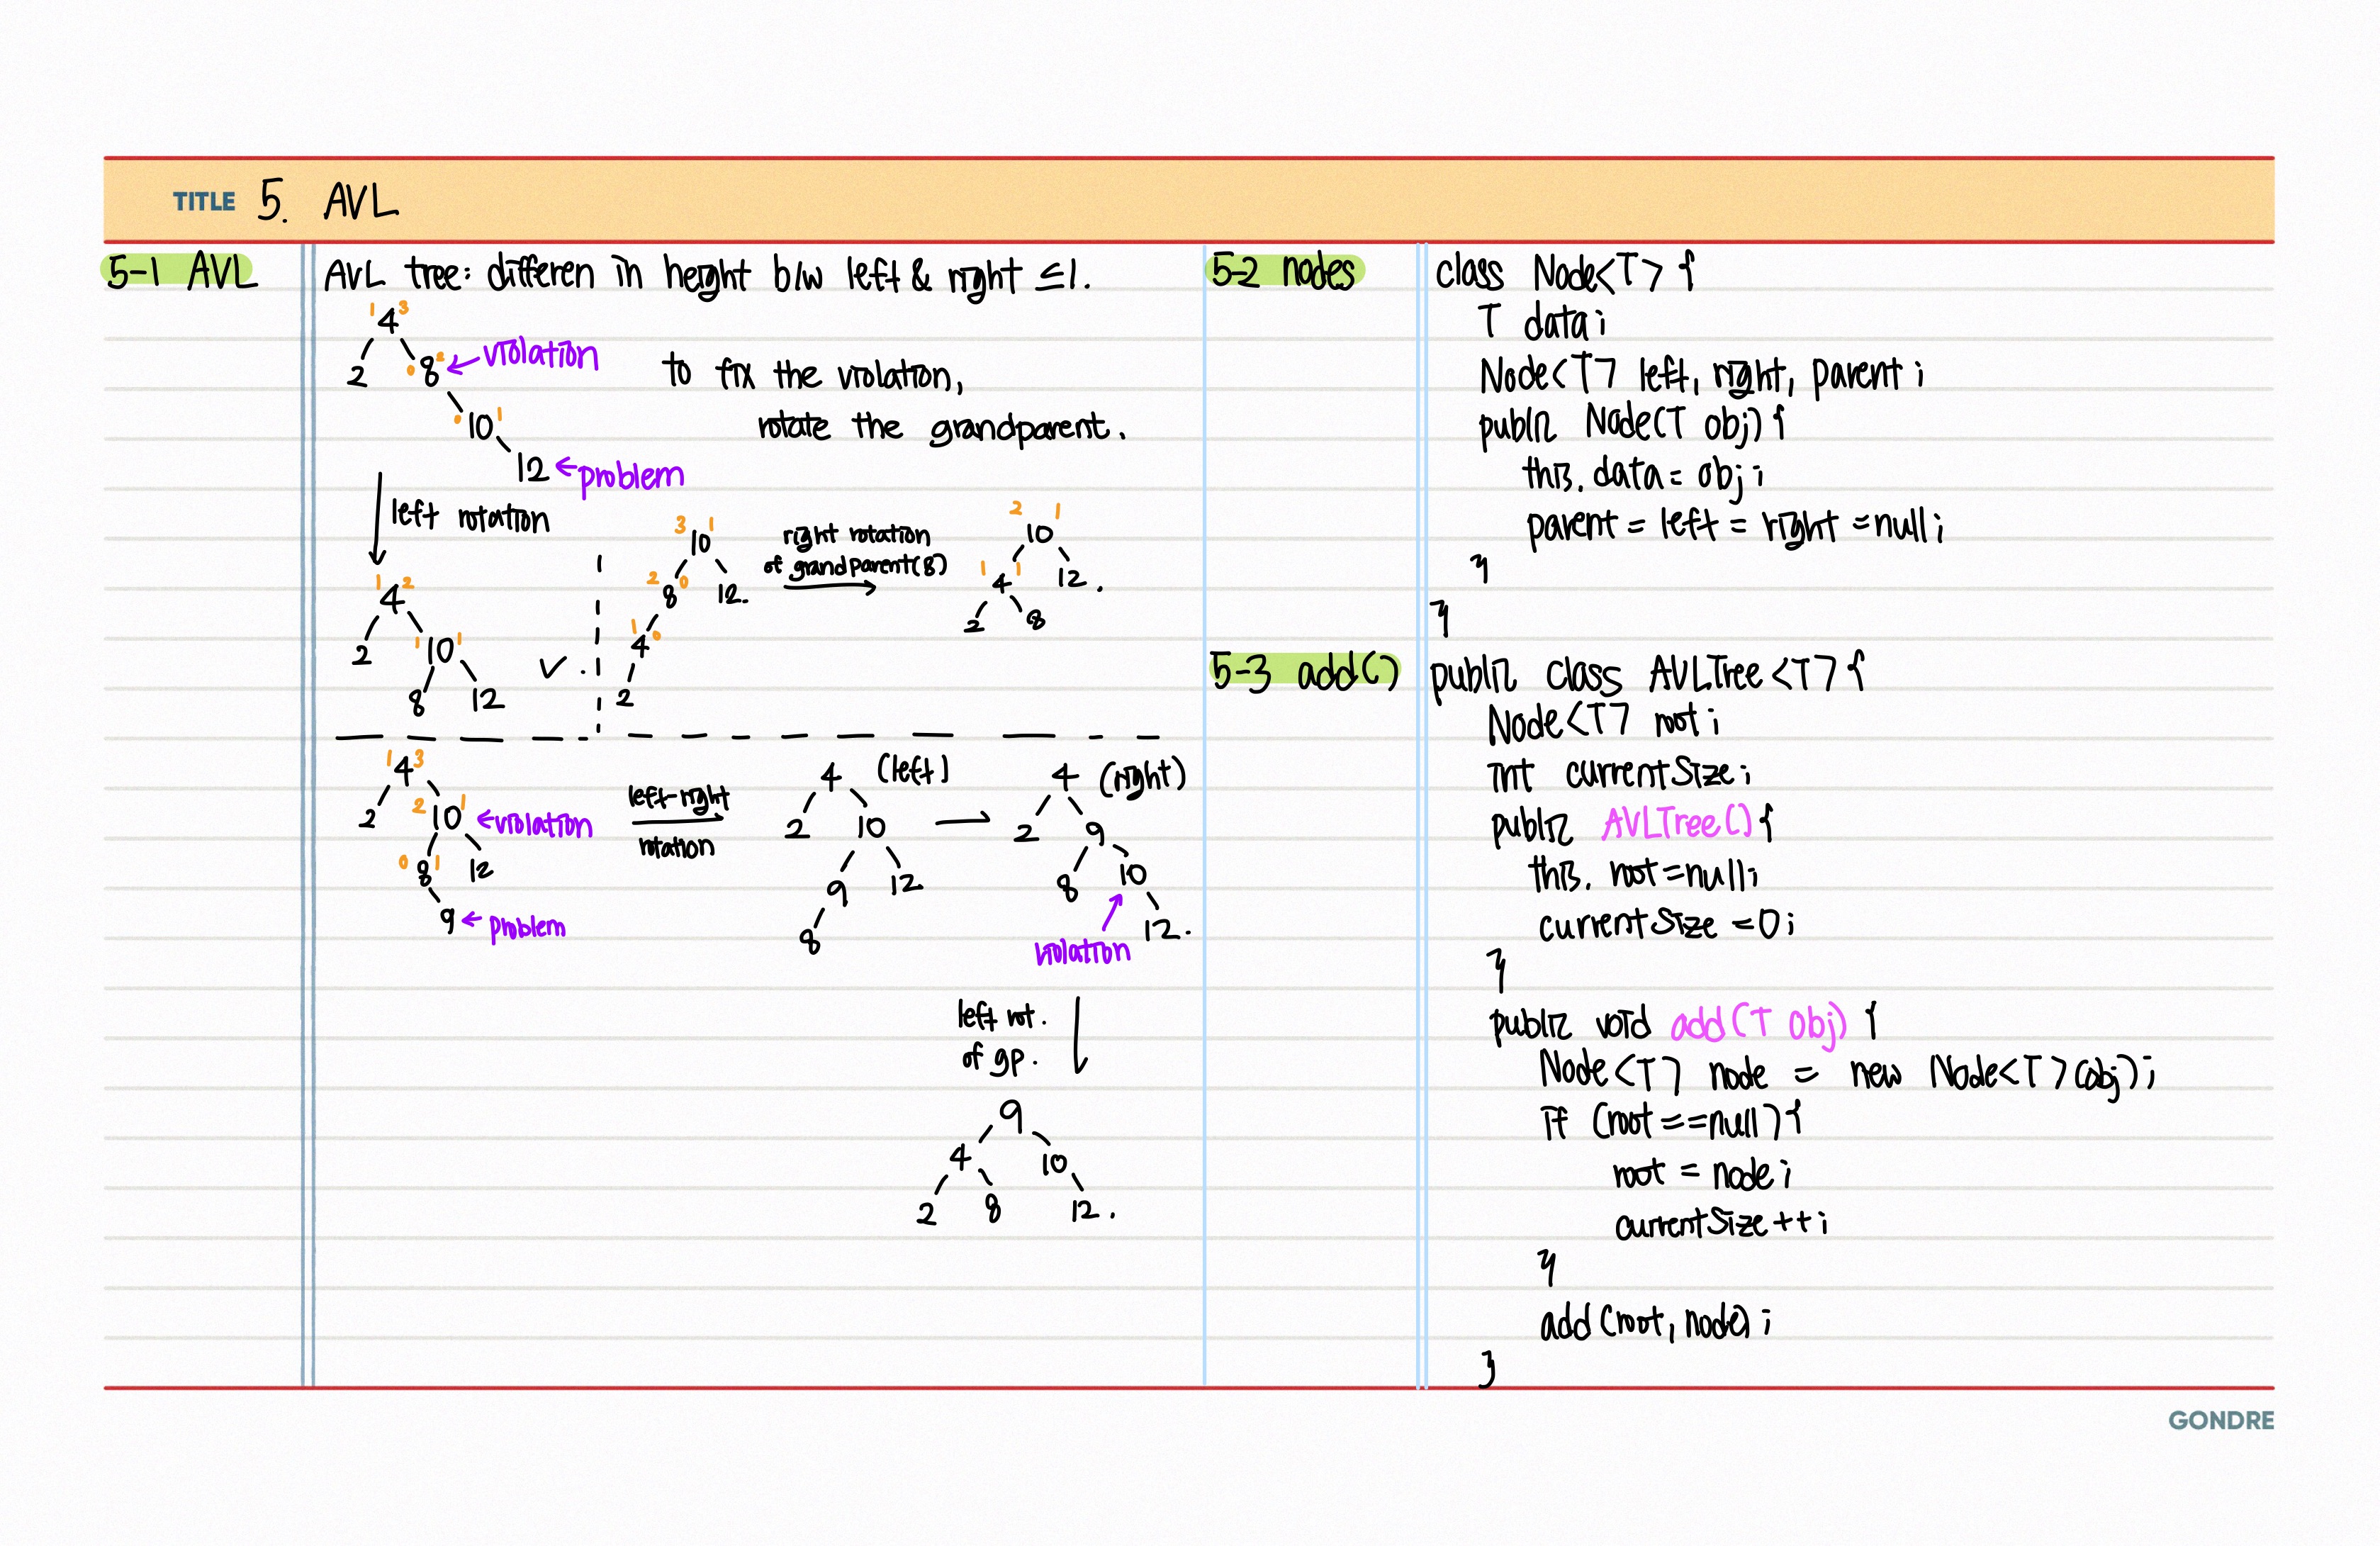 TITLE 5. AVL
5-1 AVL
AVL tree: differen in height b/w left & right ≤1.
1 4 3
2 0 8 2 ← violation
0 10 1
12 ← problem
to fix the violation,
rotate the grandparent.
left rotation
1 4 2
2 1 10 1
8 12 ✓.
3 10 1
2 8 0 12.
1 4 0
2
right rotation
of grandparent(8)
2 10 1
1 4 1 12.
2 8
1 4 3
2 2 10 1 ← violation
0 8 1 12
9 ← problem
left-right
rotation
4 (left)
2 10
9 12
8
4 (right)
2 9
8 10
12.
violation
left rot.
of gp.
9
4 10
2 8 12.
5-2 nodes
class Node<T> {
T data;
Node<T> left, right, parent;
public Node(T obj){
this.data = obj;
parent = left = right = null;
}
}
5-3 add()
public class AVLTree<T>{
Node<T> root;
int currentSize;
public AVLTree(){
this.root=null;
currentSize =0;
}
public void add(T obj) {
Node<T> node = new Node<T>(obj);
if (root==null){
root = node;
currentSize++;
}
add(root, node);
}
GONDRE